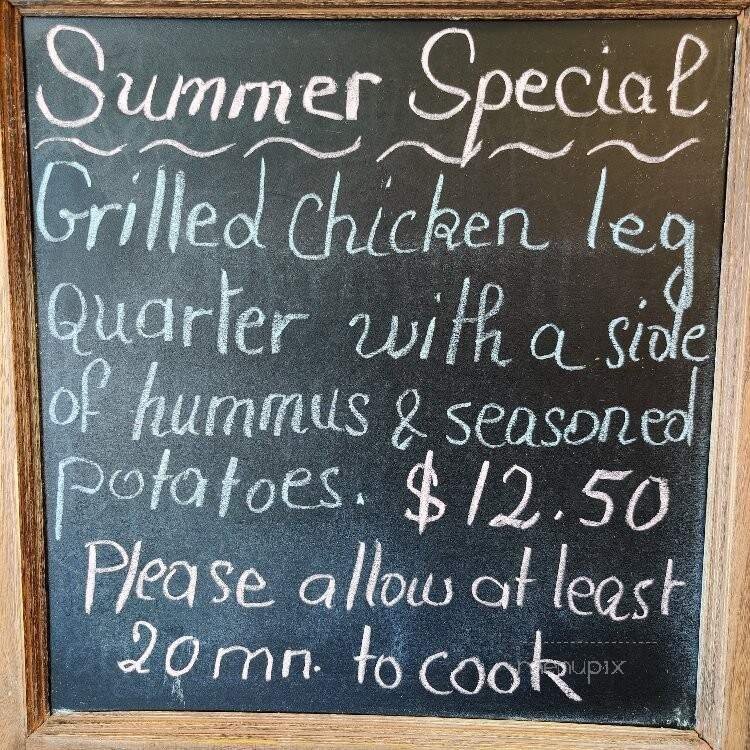 Summer Special
Grilled chicken leg
Quarter with a side
of hummus & seasoned
potatoes. $12.50
Please allow at least
20 mn. to cook
menupix